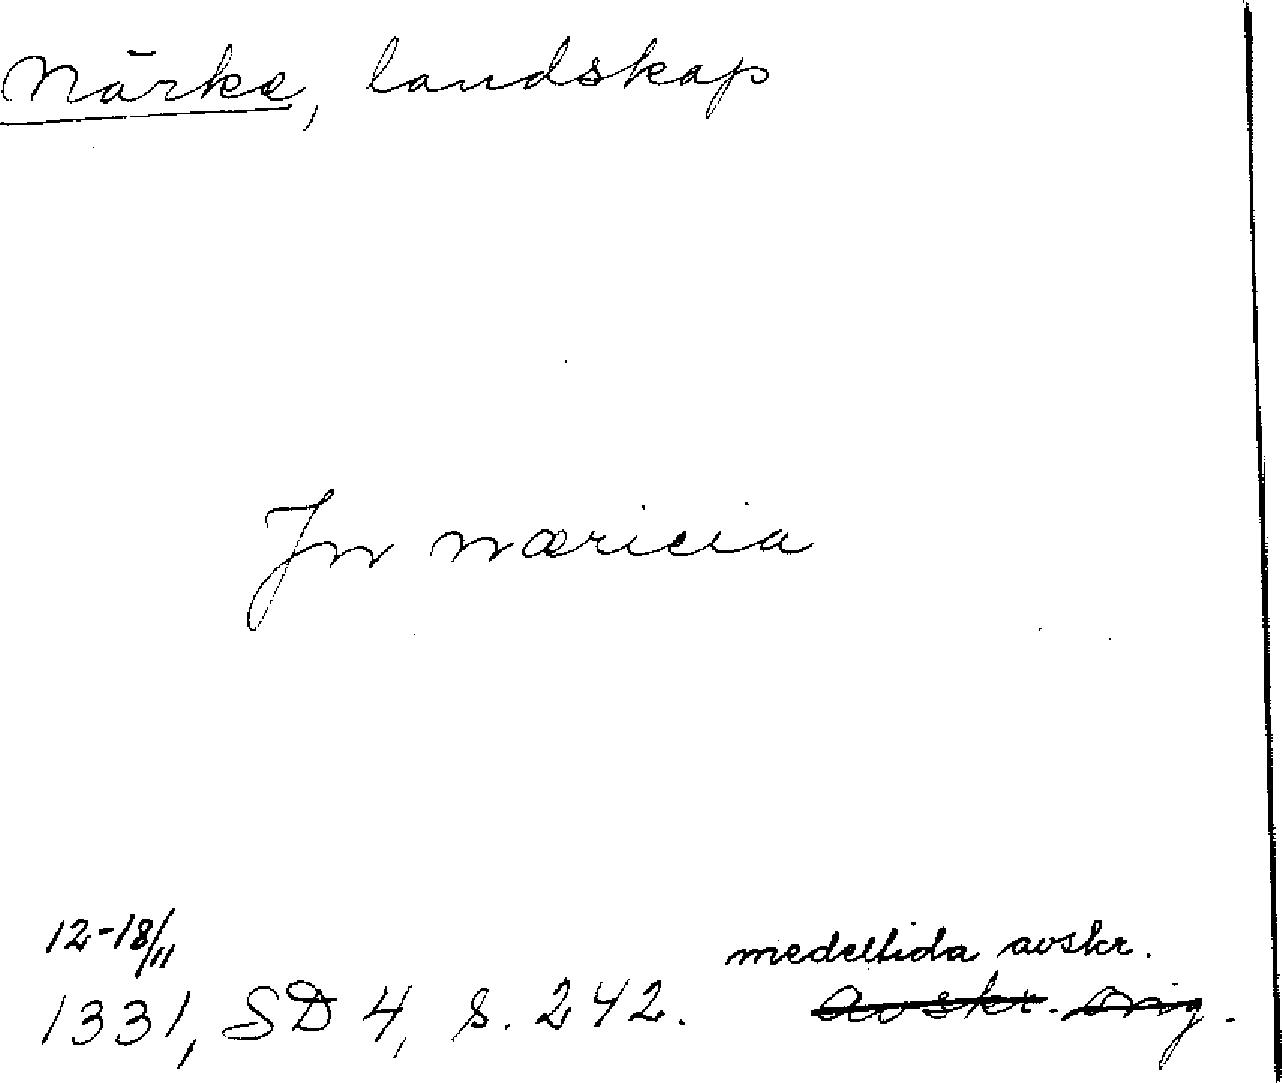 Närke, landskap
Jn næricia
12-18/11
medeltida avskr.
1331, SD 4, s. 242. avskr. orig.